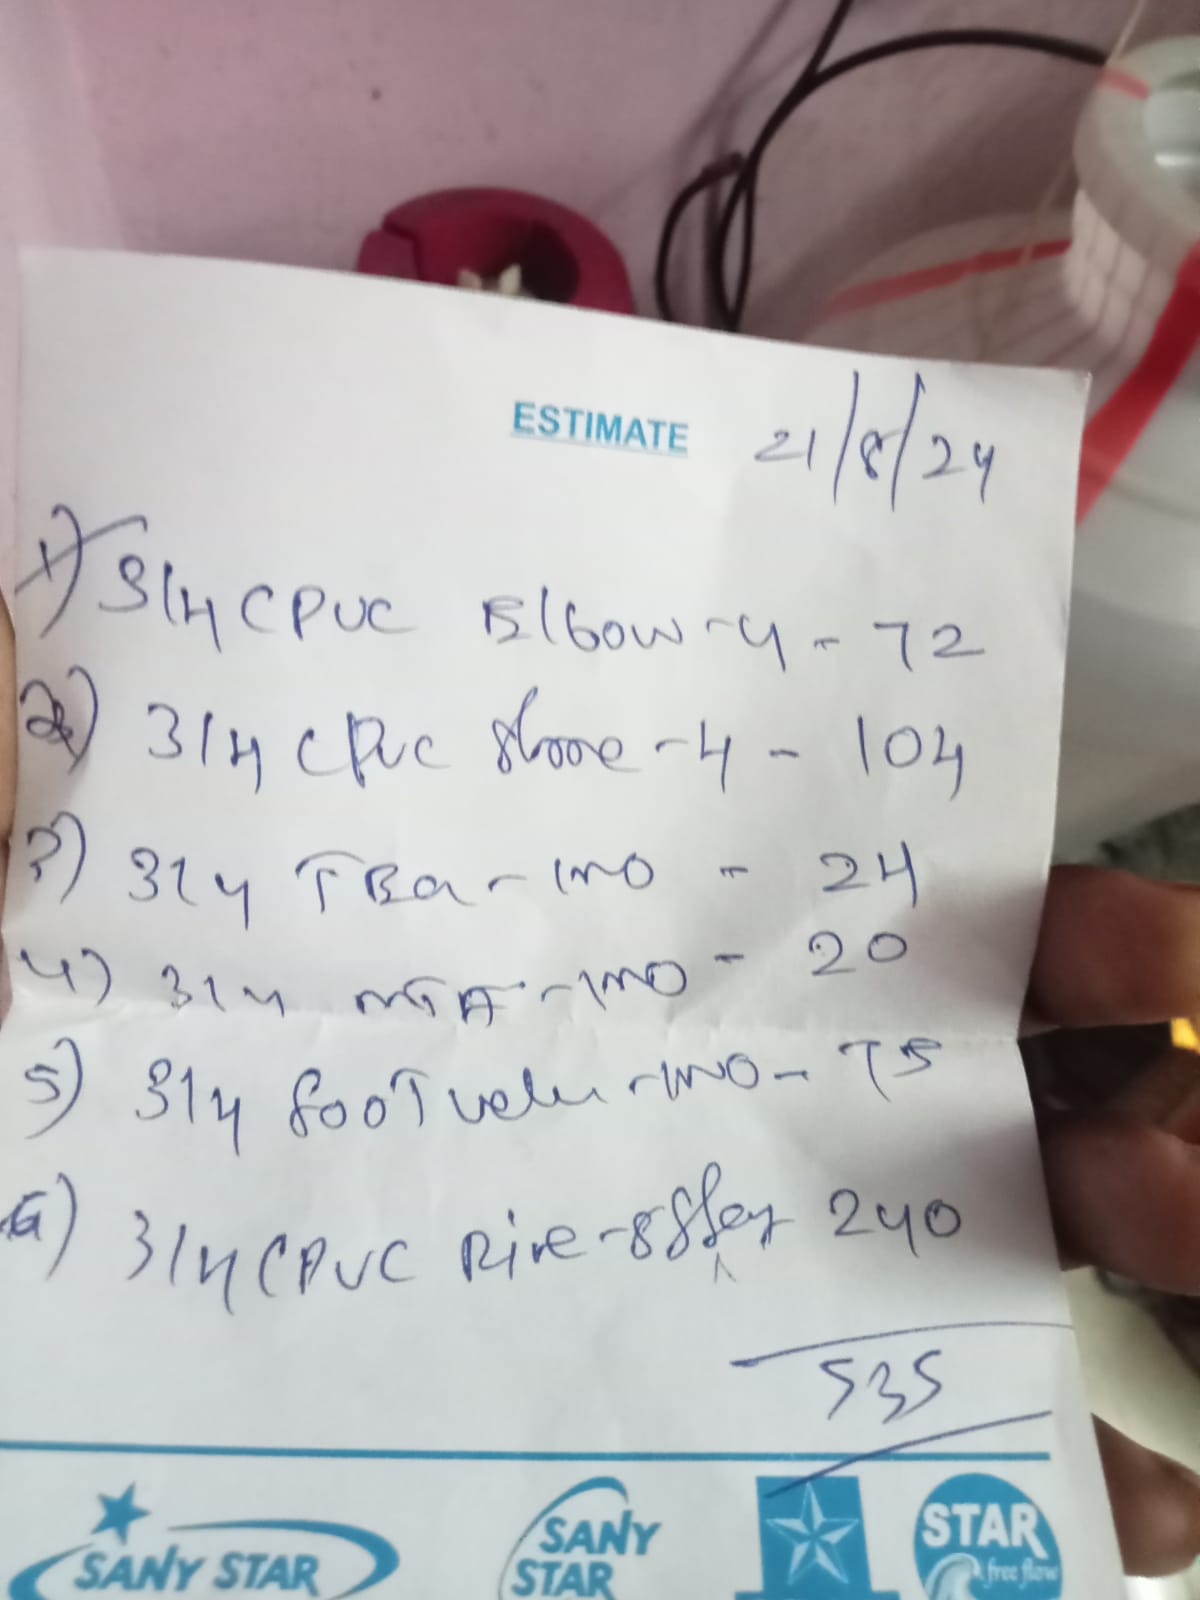 ESTIMATE 21/8/24
1) 3/4 CPVC Elbow - 4 - 72
2) 3/4 CPVC - 4 - 104
3) 3/4 - 1NO - 24
4) 3/4 MTA - 1NO - 20
5) 3/4 foot - 1NO - 75
6) 3/4 CPVC Pipe - 240
535
SANY STAR
SANY
STAR
STAR
free flow